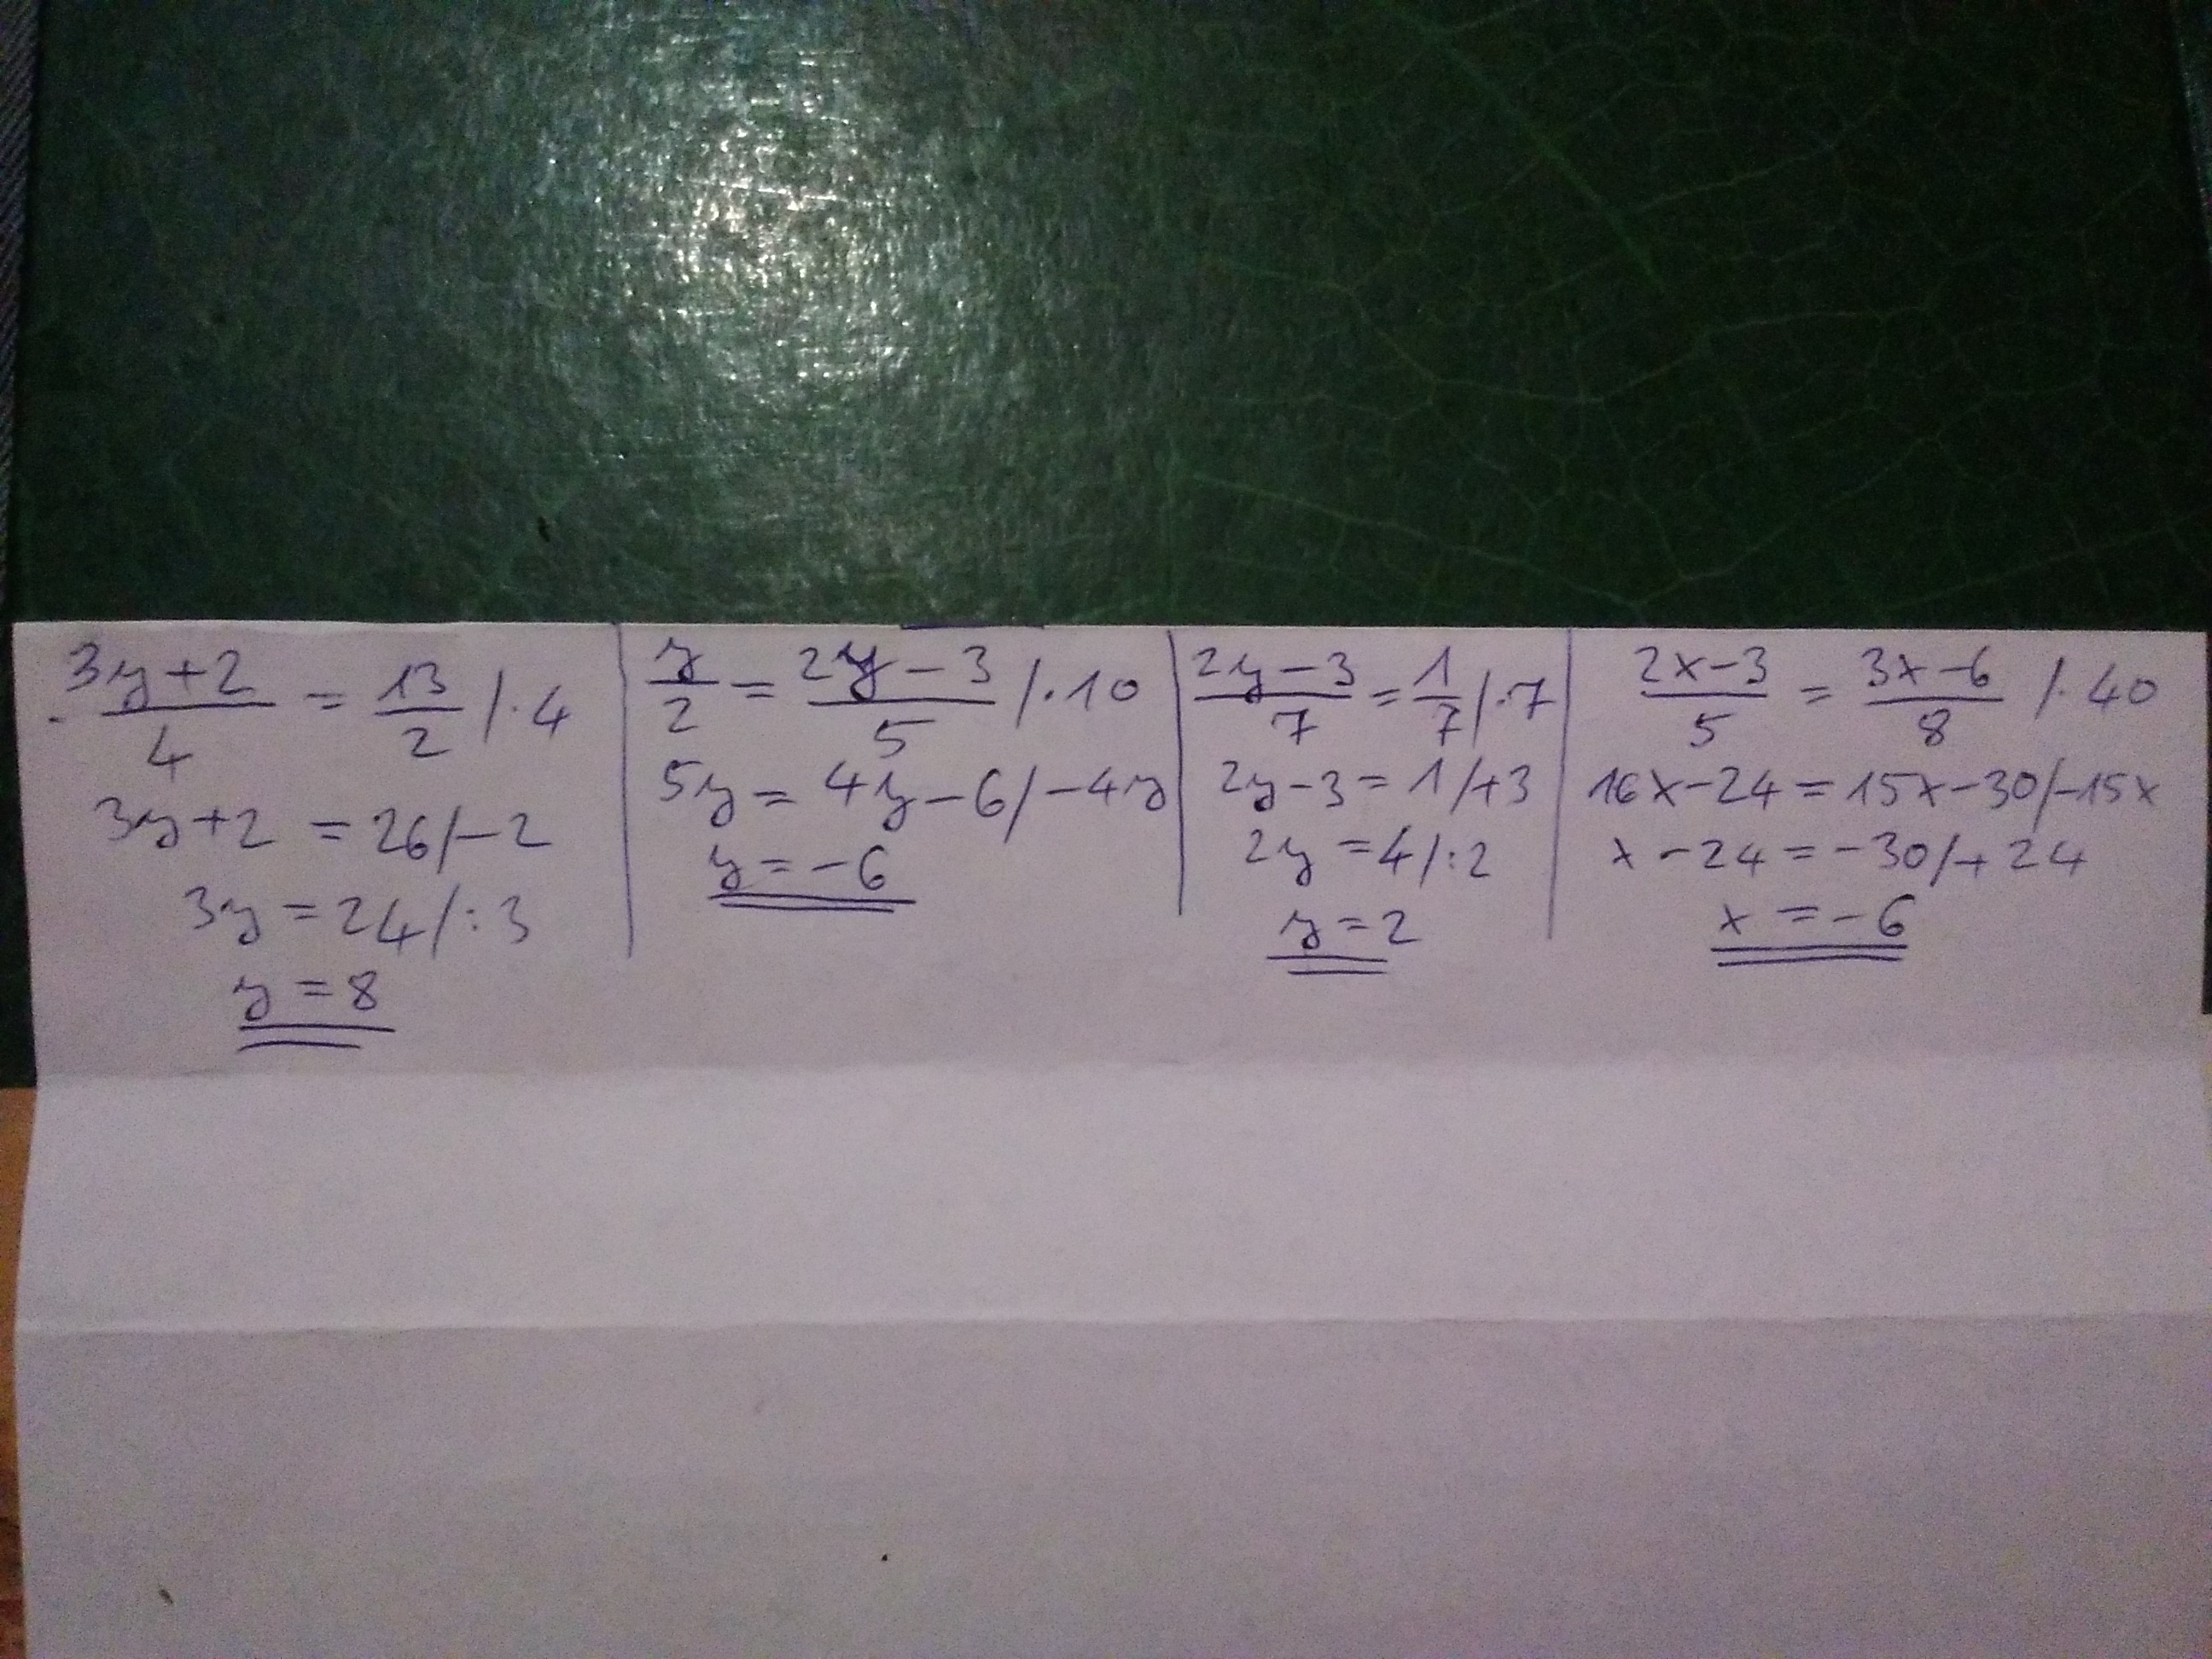 3y+2/4 = 13/2 /·4
3y+2 = 26/-2
3y = 24/:3
y = 8
y/2 = 2y-3/5 /·10
5y = 4y-6/-4y
y = -6
2y-3/7 = 1/7 /·7
2y-3 = 1/+3
2y = 4/:2
y = 2
2x-3/5 = 3x-6/8 /·40
16x-24 = 15x-30/-15x
x-24 = -30/+24
x = -6